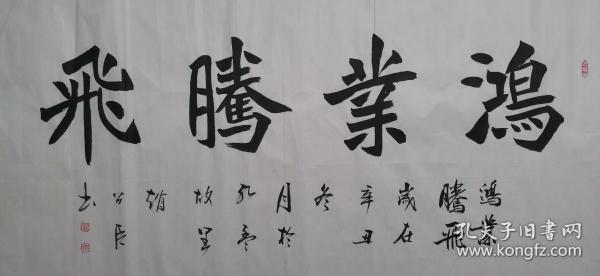 鴻業騰飛
鴻業
騰飛
歲在
辛丑
冬
月於
孔孟
故里
公臣
书
孔夫子旧书网
www.kongfz.com